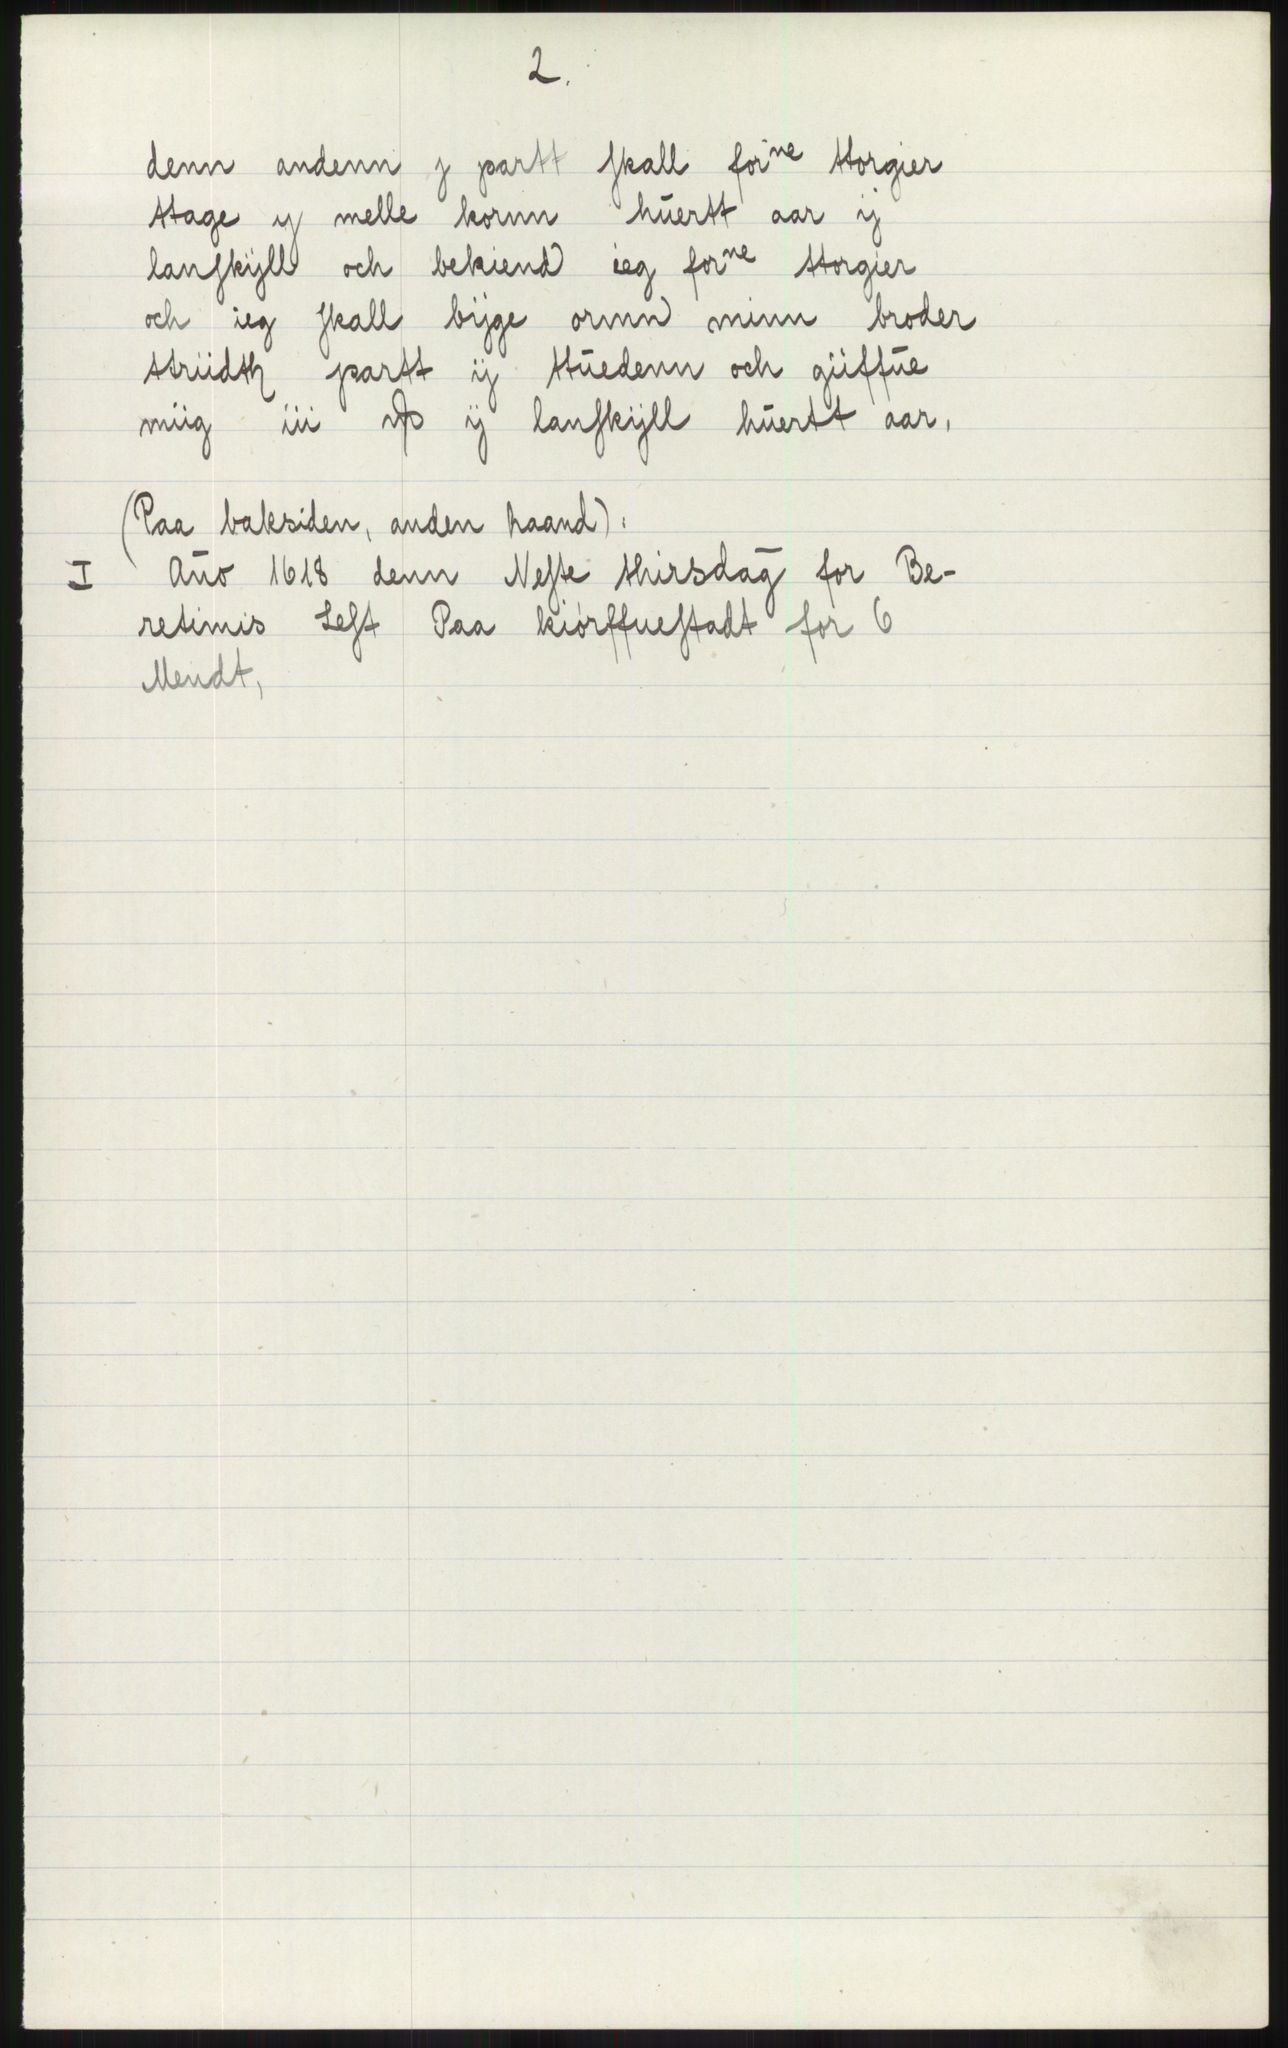 2.
denn andenn j partt skall forne ttorgier
ttage y melle kornn huertt aar ij
lanskijll och bekiend ieg forne ttorgier
och ieg skall bijge ormn minn broder
ttriidth partt ij ttuedenn och giiffue
miig iii ij lanskijll huertt aar.
(Paa baksiden, anden haand):
I Año 1618 denn Neste thirsdag for Be-
retimis Lest Paa kiörffuestadt for 6
Mendt,